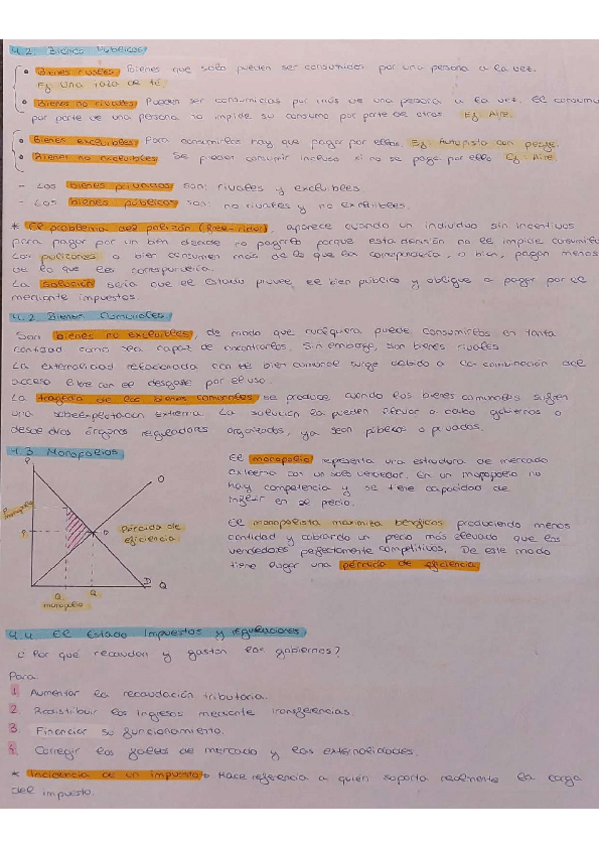 4.2. Bienes Públicos
• Bienes rivales: Bienes que solo pueden ser consumidos por una persona a la vez.
Ej: Una taza de té.
• Bienes no rivales: Pueden ser consumidas por más de una persona a la vez. El consumo
por parte de una persona no impide su consumo por parte de otros. Ej: Aire.
• Bienes excluibles: Para consumirlos hay que pagar por ellos. Ej: Autopista con peaje.
• Bienes no excluibles: Se pueden consumir incluso si no se paga por ello. Ej: Aire.
- Los bienes privados son: rivales y excluibles.
- Los bienes públicos son: no rivales y no excluibles.
* El problema del polizón (free-rider), aparece cuando un individuo sin incentivos
para pagar por un bien decide no pagarlo porque esta decisión no le impide consumirlo.
Los polizones o bien consumen más de lo que les correspondería, o bien, pagan menos
de lo que les correspondería.
La solución sería que el Estado provee el bien público y obligue a pagar por él
mediante impuestos.
4.2. Bienes Comunales
Son bienes no excluibles, de modo que cualquiera puede consumirlos en tanta
cantidad como sea capaz de encontrarlos. Sin embargo, son bienes rivales.
La externalidad relacionada con el bien comunal surge debido a la combinación del
acceso libre con el desgaste por el uso.
La tragedia de los bienes comunales se produce cuando los bienes comunales sufren
una sobreexplotación extrema. La solución la pueden llevar a cabo gobiernos o
desde otros órganos reguladores organizados, ya sean públicos o privados.
4.3 Monopolios
El monopolio representa una estructura de mercado
extrema con un solo vendedor. En un monopolio no
hay competencia y se tiene capacidad de
influir en el precio.
El monopolista maximiza beneficios produciendo menos
cantidad y cobrando un precio más elevado que los
vendedores perfectamente competitivos. De este modo
tiene lugar una pérdida de eficiencia.
P
O
P monopolio
P
Pérdida de
eficiencia
D
Q
Q monopolio
Q
4.4 El Estado Impuestos y regulaciones
¿Por qué recaudan y gastan los gobiernos?
Para:
1. Aumentar la recaudación tributaria.
2. Redistribuir los ingresos mediante transferencias.
3. Financiar su funcionamiento.
4. Corregir los fallos de mercado y las externalidades.
* Incidencia de un impuesto → Hace referencia a quién soporta realmente la carga
del impuesto.